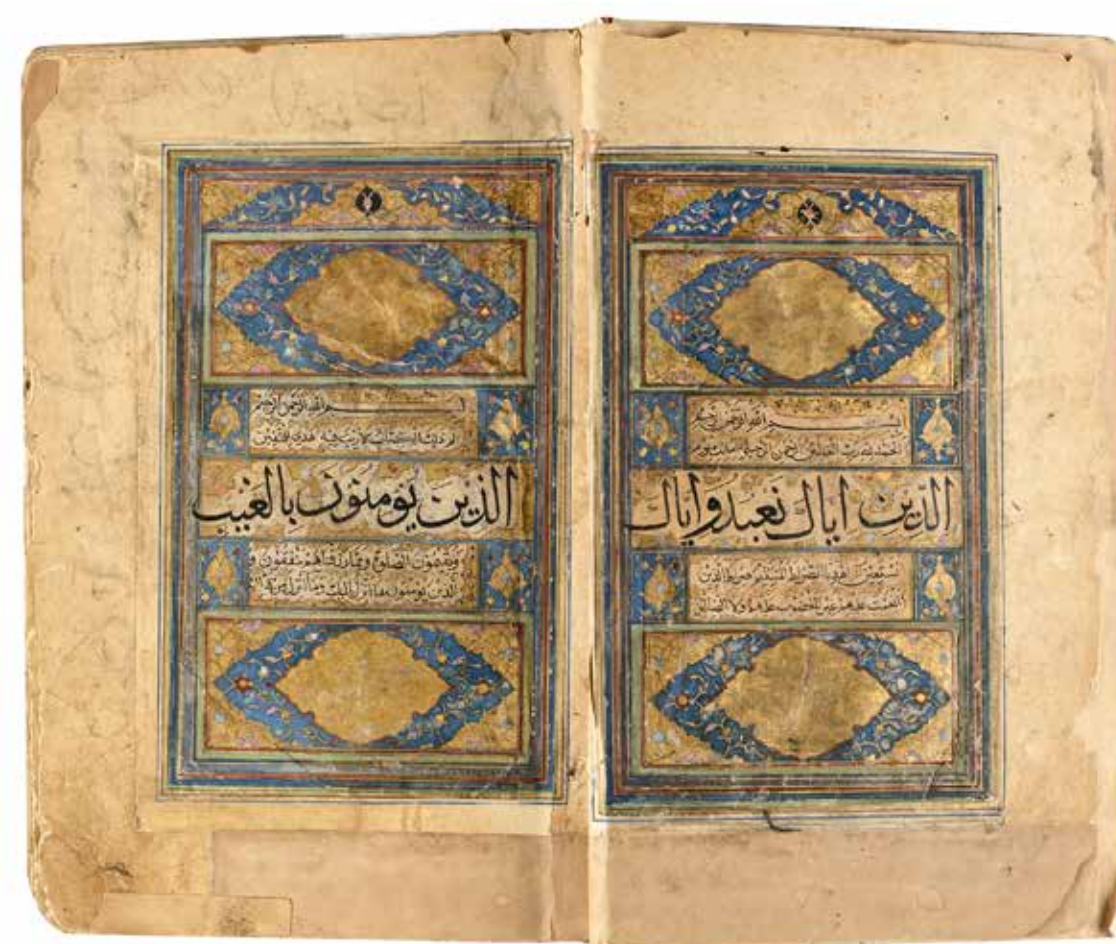 بسم الله الرحمن الرحيم
الحمد لله رب العالمين الرحمن الرحيم مالك يوم
الدين اياك نعبد واياك
نستعين اهدنا الصراط المستقيم صراط الذين
انعمت عليهم غير المغضوب عليهم ولا الضالين
بسم الله الرحمن الرحيم
الم ذلك الكتاب لا ريب فيه هدى للمتقين
الذين يومنون بالغيب
ويقيمون الصلوة ومما رزقناهم ينفقون و
الذين يومنون بما انزل اليك وما انزل من